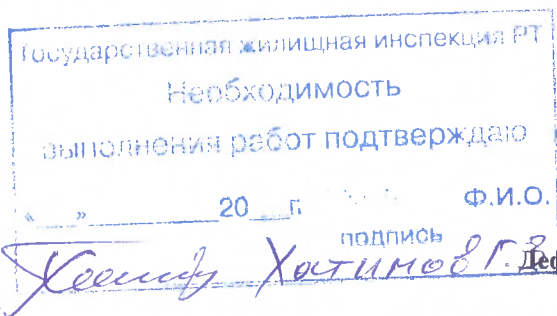 Государственная жилищная инспекция РТ
Необходимость
выполнения работ подтверждаю
« » 20 г. Ф.И.О.
подпись
Хатимов Г.
Деф